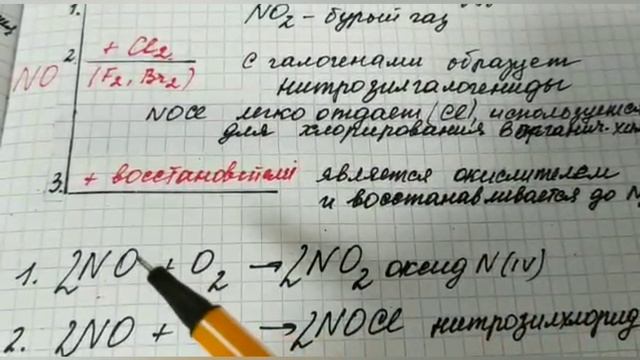 1. NO₂ - бурый газ
NO 2. + Cl₂ с галогенами образует
(F₂, Br₂) нитрозилгалогениды
NOCl легко отдает (Cl), используется
для хлорирования в органич.
3. + восстановители является окислителем
и восстанавливается до N
1. 2NO + O₂ → 2NO₂ оксид N(IV)
2. 2NO + → 2NOCl нитрозилхлорид